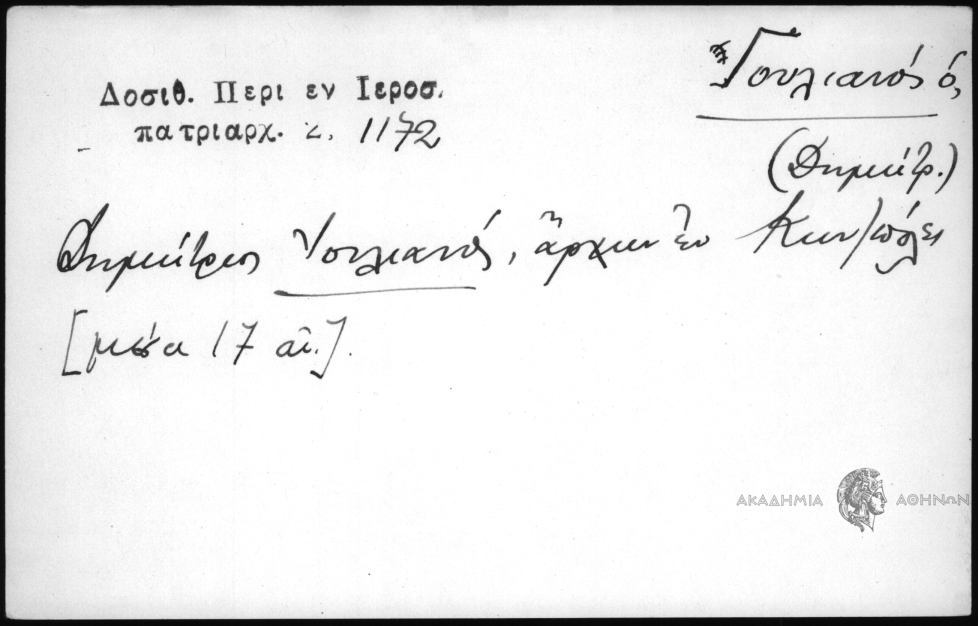 Ἰουλιανός ὁ,
(Δημήτρ.)
Δοσιθ. Περι εν Ιεροσ.
πατριαρχ. Σ. 1172
Δημήτριος Ἰουλιανός, ἄρχων ἐν Κων/πόλει
[μέσα 17 αἰ.].
ΑΚΑΔΗΜΙΑ ΑΘΗΝΩΝ